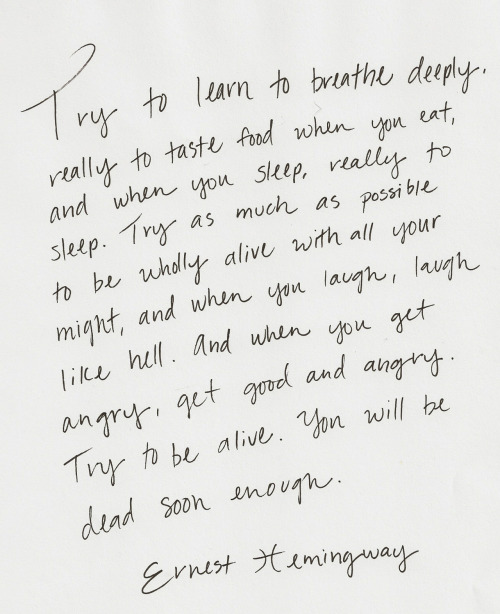 Try to learn to breathe deeply,
really to taste food when you eat,
and when you sleep, really to
sleep. Try as much as possible
to be wholly alive with all your
might, and when you laugh, laugh
like hell. And when you get
angry, get good and angry.
Try to be alive. You will be
dead soon enough.
Ernest Hemingway